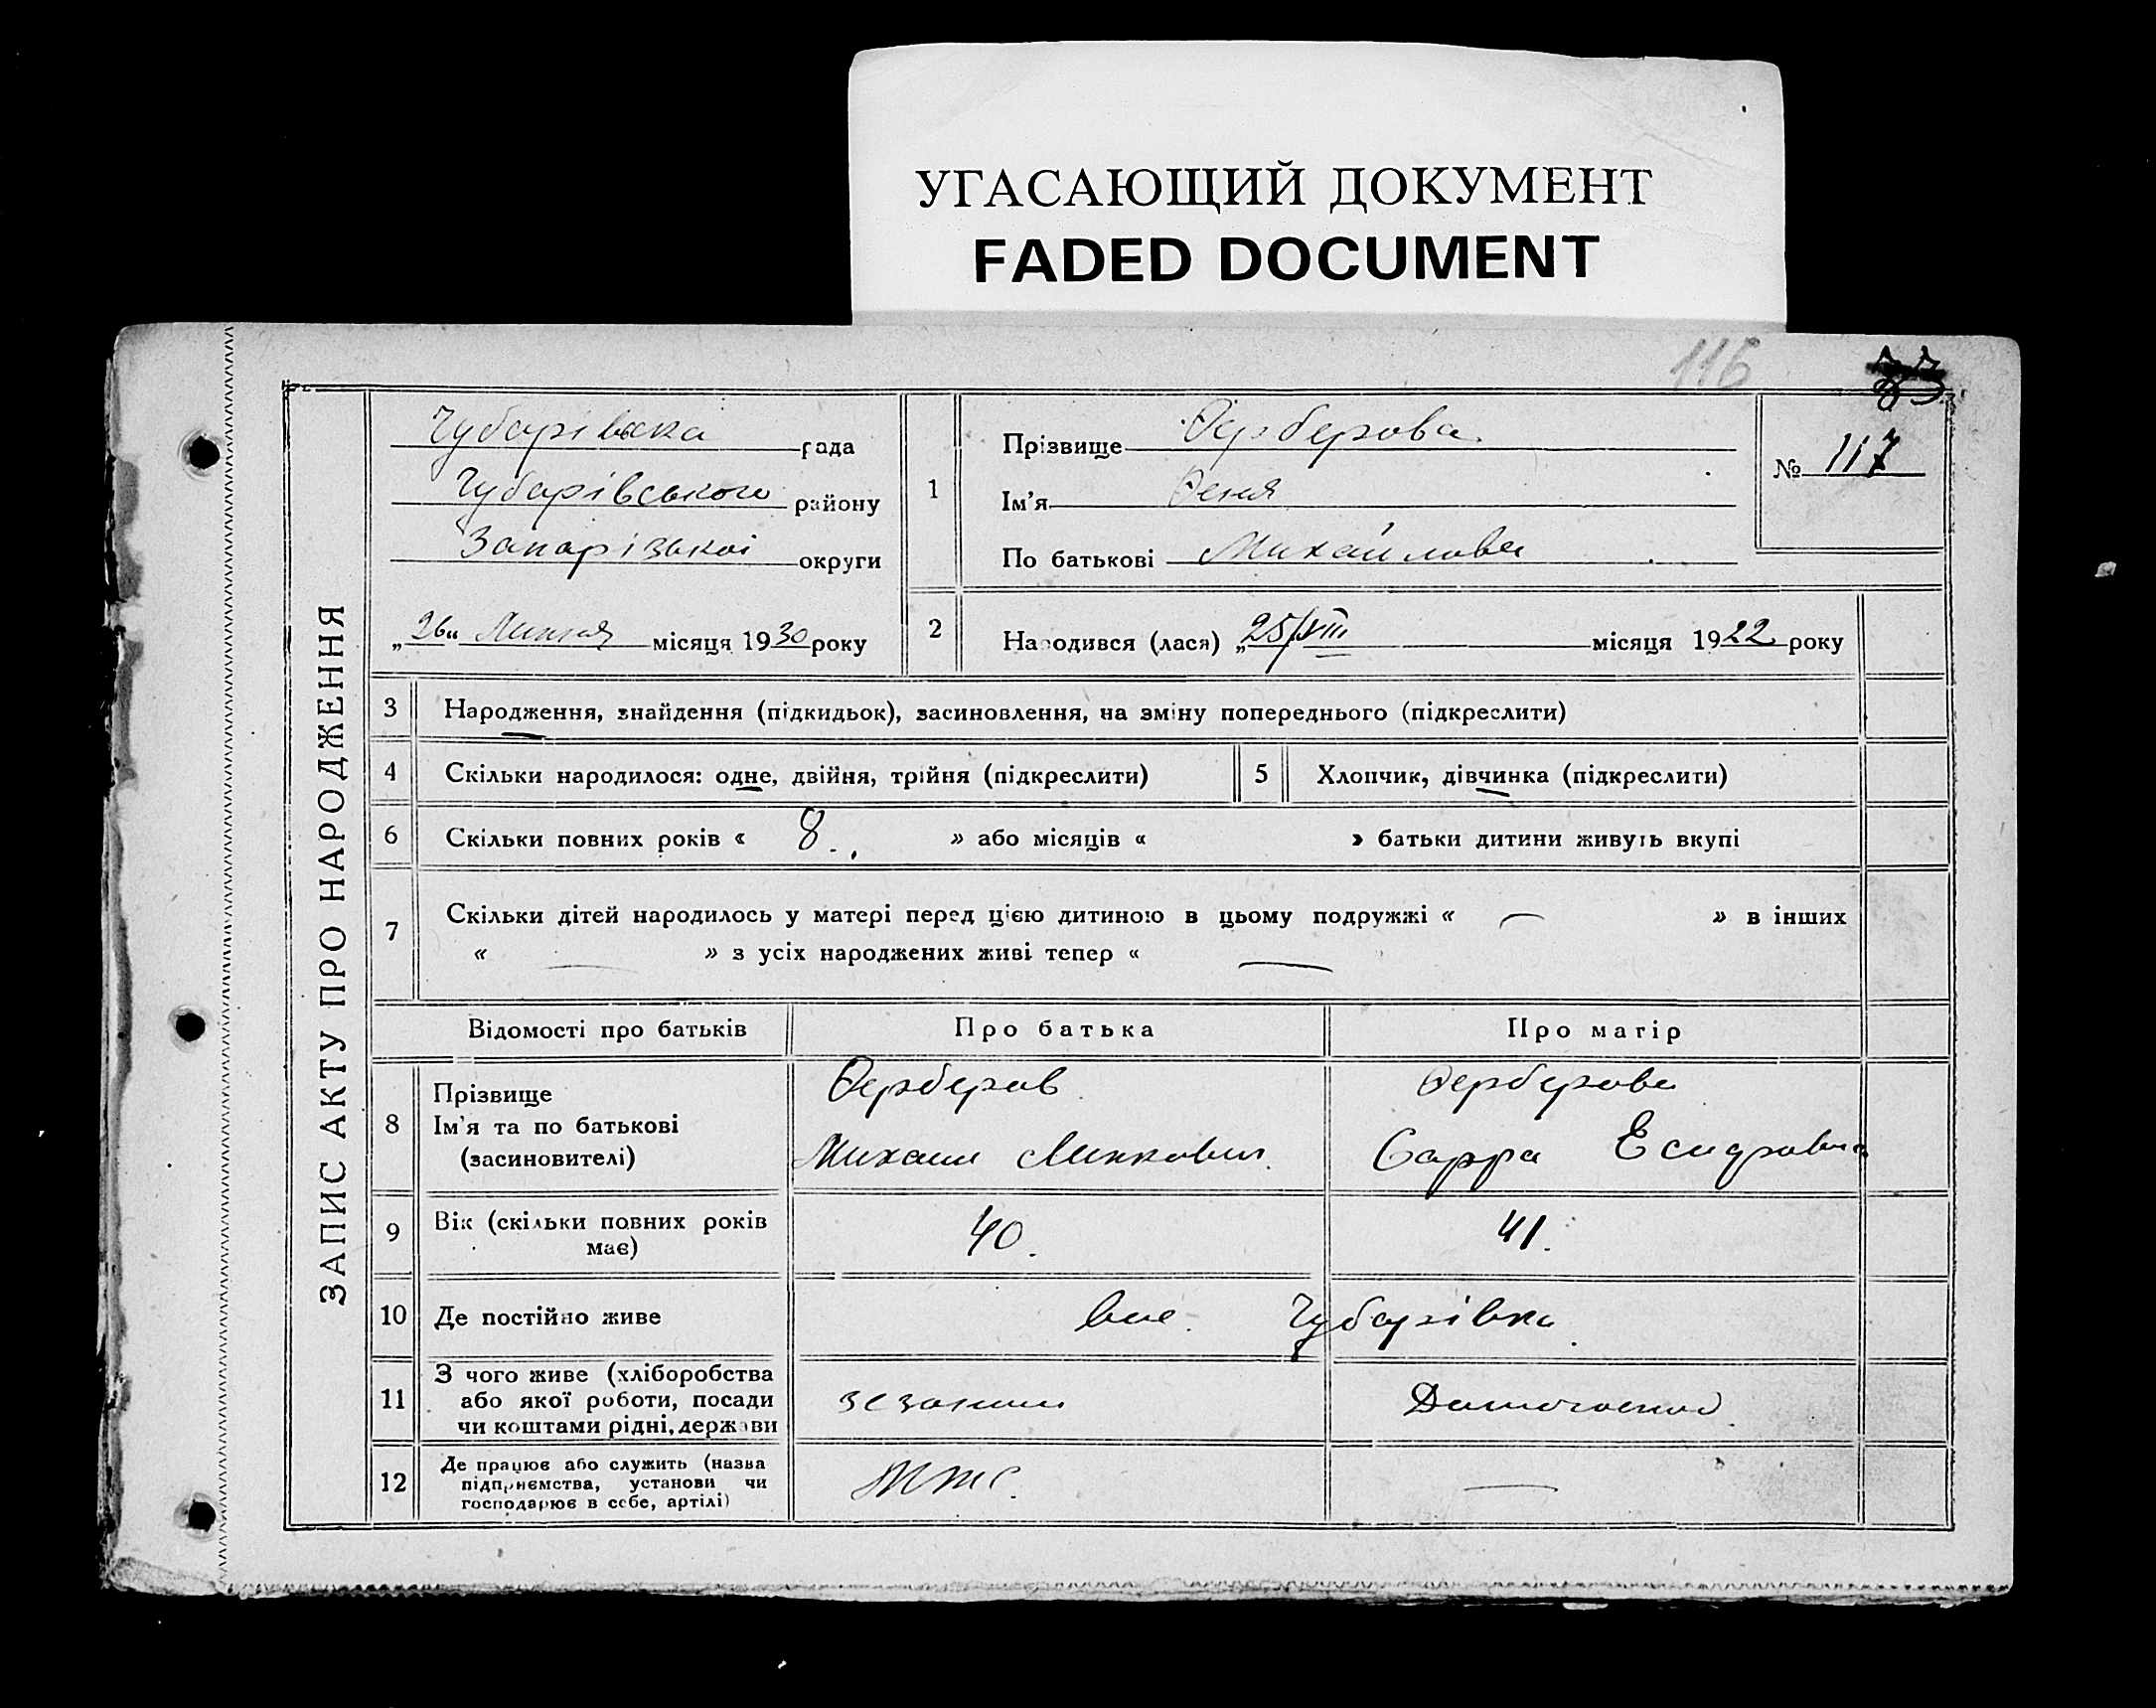 УГАСАЮЩИЙ ДОКУМЕНТ
FADED DOCUMENT
116
ЗАПИС АКТУ ПРО НАРОДЖЕННЯ
Чубарівська рада
Чубарівського району
Запарізькоі округи
„26“ Липня місяця 1930 року
1
Прізвище Ферберова
Ім'я Феня
По батькові Михайлова
№ 117
2 Народився (лася) „25/VIII місяця 1922 року
3 Народження, знайдення (підкидьок), засиновлення, на зміну попереднього (підкреслити)
4 Скільки народилося: одне, двійня, трійня (підкреслити) 5 Хлопчик, дівчинка (підкреслити)
6 Скільки повних років « 8 » або місяців « » батьки дитини живуть вкупі
7 Скільки дітей народилось у матері перед цією дитиною в цьому подружжі « — » в інших
« — » з усіх народжених живі тепер « —
Відомості про батьків Про батька Про матір
8 Прізвище
Ім'я та по батькові
(засиновителі)
Ферберов
Михаил
Ферберова
Сарра
9 Вік (скільки повних років
має)
40. 41.
10 Де постійно живе Чубарівка
11 З чого живе (хліборобства
або якої роботи, посади
чи коштами рідні, держави
12 Де працює або служить (назва
підприємства, установи чи
господарює в себе, артілі)
—